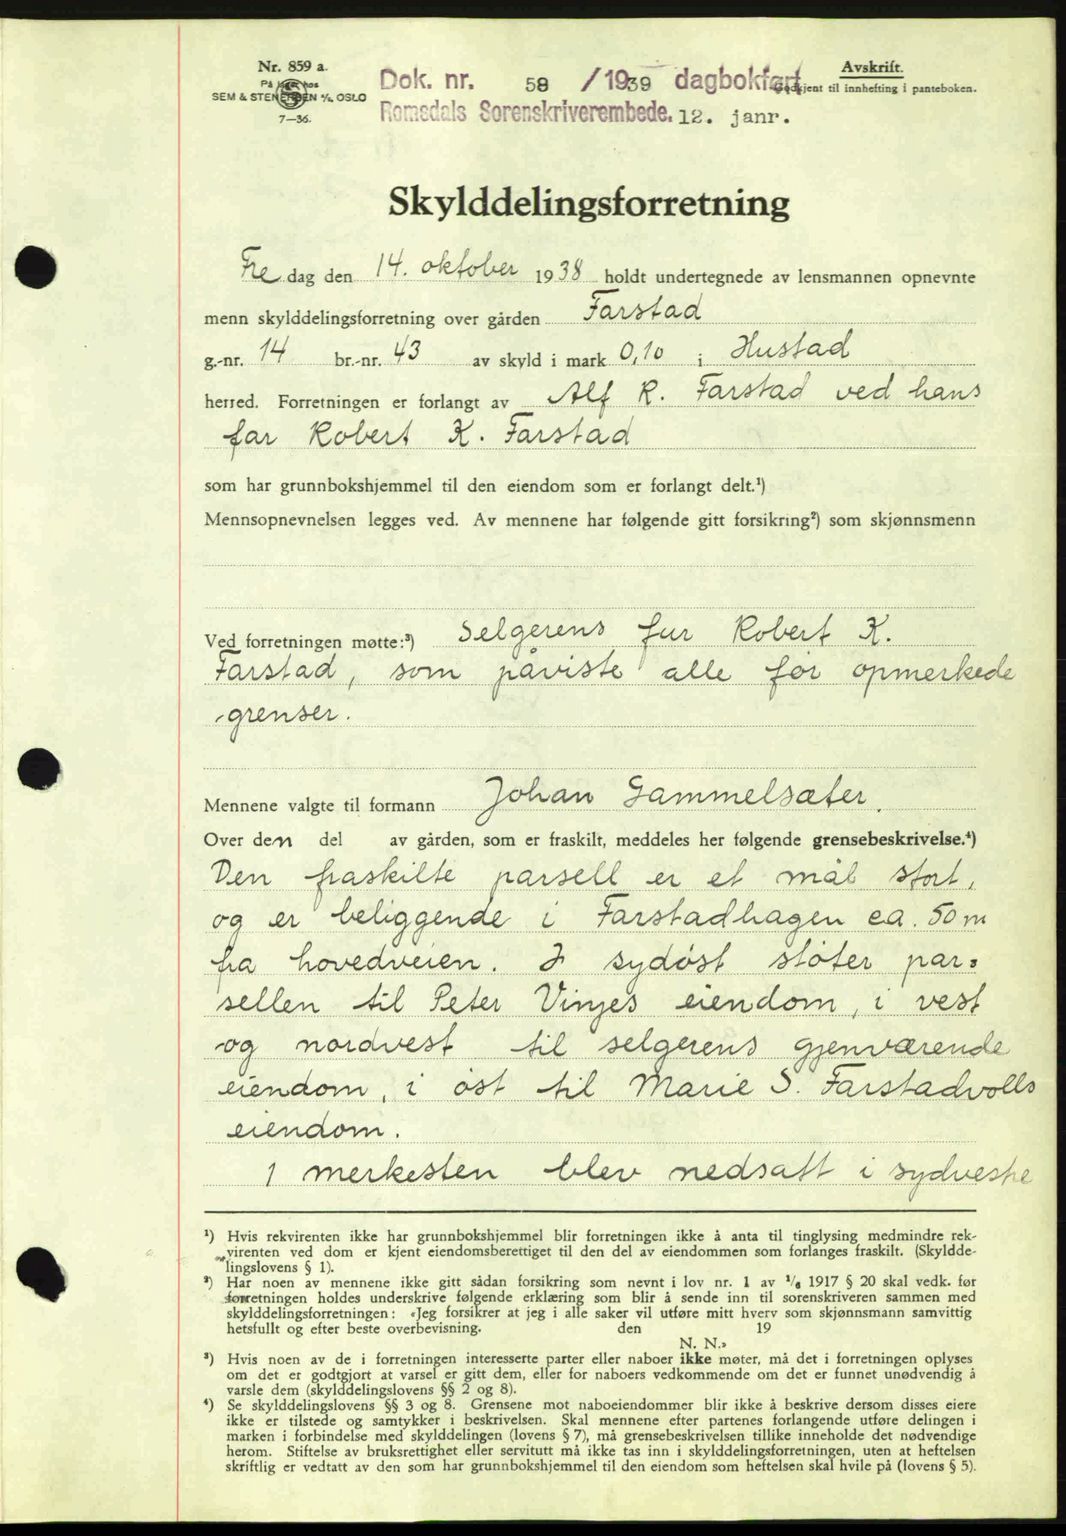 Nr. 859 a.
På lager hos
SEM & STENERSEN A/S. OSLO
7—36.
Dok. nr. 58 /1939 dagbokført
Romsdals Sorenskriverembede. 12. janr.
Avskrift.
Godkjent til innhefting i panteboken.
Skylddelingsforretning
Fre dag den 14. oktober 1938 holdt undertegnede av lensmannen opnevnte
menn skylddelingsforretning over gården Farstad
g.-nr. 14 br.-nr. 43 av skyld i mark 0,10 i Hustad
herred. Forretningen er forlangt av Alf R. Farstad ved hans
far Robert K. Farstad
som har grunnbokshjemmel til den eiendom som er forlangt delt.¹)
Mennsopnevnelsen legges ved. Av mennene har følgende gitt forsikring²) som skjønnsmenn
Ved forretningen møtte:³) Selgerens far Robert K.
Farstad, som påviste alle før opmerkede
grenser.
Mennene valgte til formann Johan Gammelsæter.
Over den del av gården, som er fraskilt, meddeles her følgende grensebeskrivelse.⁴)
Den fraskilte parsell er et mål stort,
og er beliggende i Farstadhagen ca. 50 m
fra hovedveien. I sydøst støter par-
sellen til Peter Vinjes eiendom, i vest
og nordvest til selgerens gjenværende
eiendom, i øst til Marie S. Farstadvolls
eiendom.
1 merkesten blev nedsatt i sydvestre
¹) Hvis rekvirenten ikke har grunnbokshjemmel blir forretningen ikke å anta til tinglysing medmindre rek-
virenten ved dom er kjent eiendomsberettiget til den del av eiendommen som forlanges fraskilt. (Skyldde-
lingslovens § 1).
²) Har noen av mennene ikke gitt sådan forsikring som nevnt i lov nr. 1 av 1/6 1917 § 20 skal vedk. før
forretningen holdes underskrive følgende erklæring som blir å sende inn til sorenskriveren sammen med
skylddelingsforretningen: «Jeg forsikrer at jeg i alle saker vil utføre mitt hverv som skjønnsmann samvittig
hetsfullt og efter beste overbevisning. den 19
N. N.»
³) Hvis noen av de i forretningen interesserte parter eller naboer ikke møter, må det i forretningen oplyses
om det er godtgjort at varsel er gitt dem, eller for naboers vedkommende om det er funnet unødvendig å
varsle dem (skylddelingslovens §§ 2 og 8).
⁴) Se skylddelingslovens §§ 3 og 8. Grensene mot naboeiendommer blir ikke å beskrive dersom disses eiere
ikke er tilstede og samtykker i beskrivelsen. Skal mennene efter partenes forlangende utføre delingen i
marken i forbindelse med skylddelingen (lovens § 7), må grensebeskrivelsen tillike inneholde det nødvendige
herom. Stiftelse av bruksrettighet eller servitutt må ikke tas inn i skylddelingsforretningen, uten at heftelsen
skriftlig er vedtatt av den som har grunnbokshjemmel til den eiendom som heftelsen skal hvile på (lovens § 5).